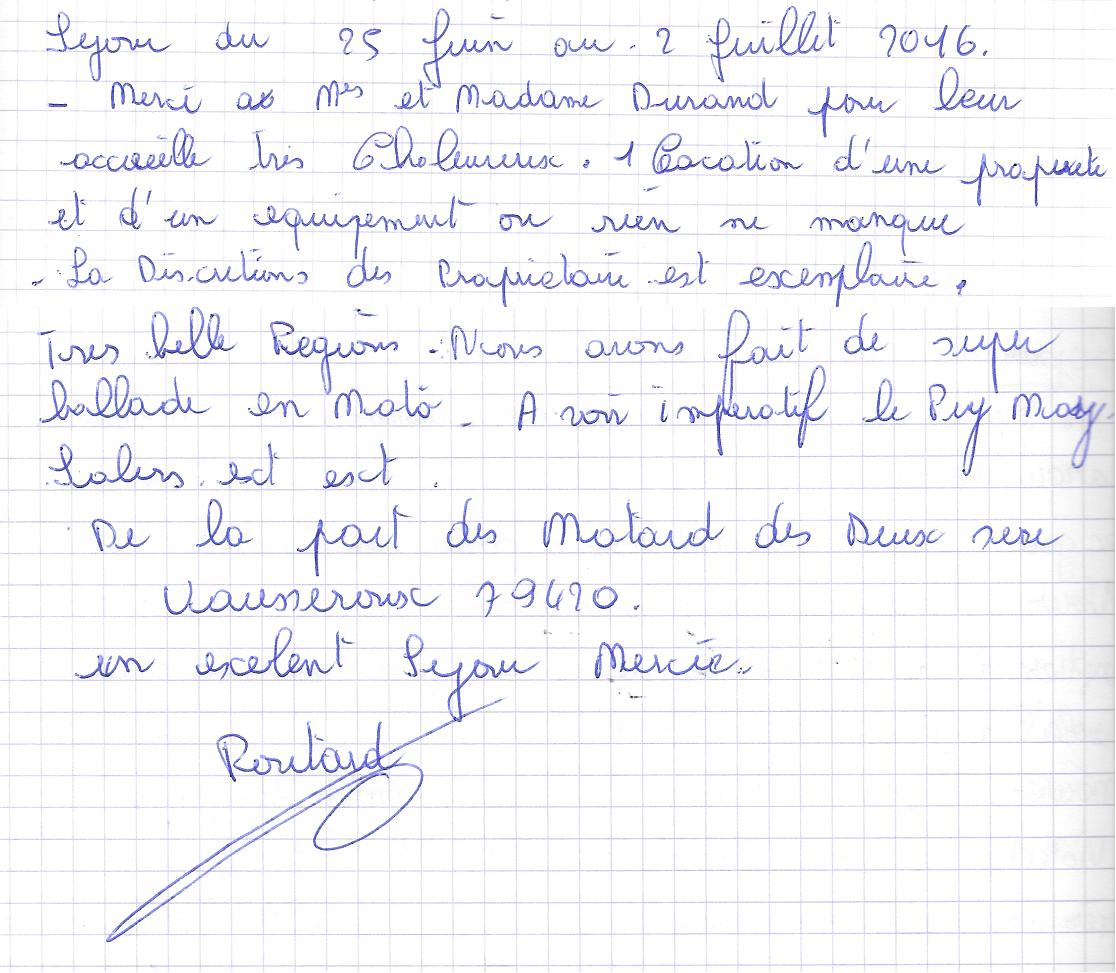 Sejour du 25 Juin au 2 Juillet 2016.
- Merci à Mrs et Madame Durand pour leur
accueille très Chaleureux. 1 Location d'une propreté
et d'un equipement ou rien ne manque
- La Discretions des Propriétaire est exemplaire.
Tres belle Regions - Nous avons fait de super
ballade en Moto - A voir imperatif le Puy Mary
Salers ect ect.
De la part des Motard des Deux sevre
Vausseroux 79420.
un excelent Sejour Mercie.
Routard